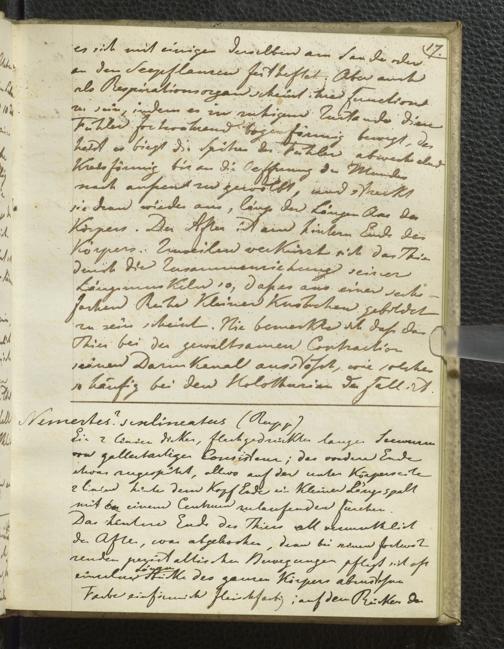 17.
es sich mit einigen derselben am Sande oder
an den Seepflanzen festheftet. Aber auch
als Respirationsorgan scheint ihre Function
zu sein, indem es im ruhigen Zustande diese
Fühler fortwährend bogenförmig bewegt, das
heist es biegt die Spitzen der Fühler abwechselnd
Kreisförmig bis an die Oeffnung des Mundes
nach aussen zu gewölbt, und streckt
sie dann wieder aus, längs der Längen Axe des
Körpers. Der After ist am hintern Ende des
Körpers. Zuweilen verkürzt sich das Thier
durch die Zusammenziehung seiner
Längsmuskeln so, daß es aus einer einfachen
Reihe kleiner Knötchen gebildet
zu sein scheint. Nie bemerkte ich daß das
Thier bei der gewaltsamen Contraction
seinen Darmkanal ausstößt, wie solches
so häufig bei den Holothurien der Fall ist.
Nemertes? sexlineatus (Rupp)
Ein 2 Linien dicker, flachgedrückter langer Seewurm
von gallertartiger Consistenz; das vordere Ende
etwas zugespitzt, allwo auf der untern Körperseite
2 Linien hinter dem Kopf Ende ein kleiner Längsspalt
mit einem Centrum zulaufender Furchen.
Das hintere Ende des Thiers allwo vermuthlich
der After, war abgebrochen, denn bei seinen fortwährenden
peristaltischen Bewegungen pflegt sich oft
einzelne Stücke des ganzen Körpers
Farbe einförmig fleischfarbig; auf dem Rücken der